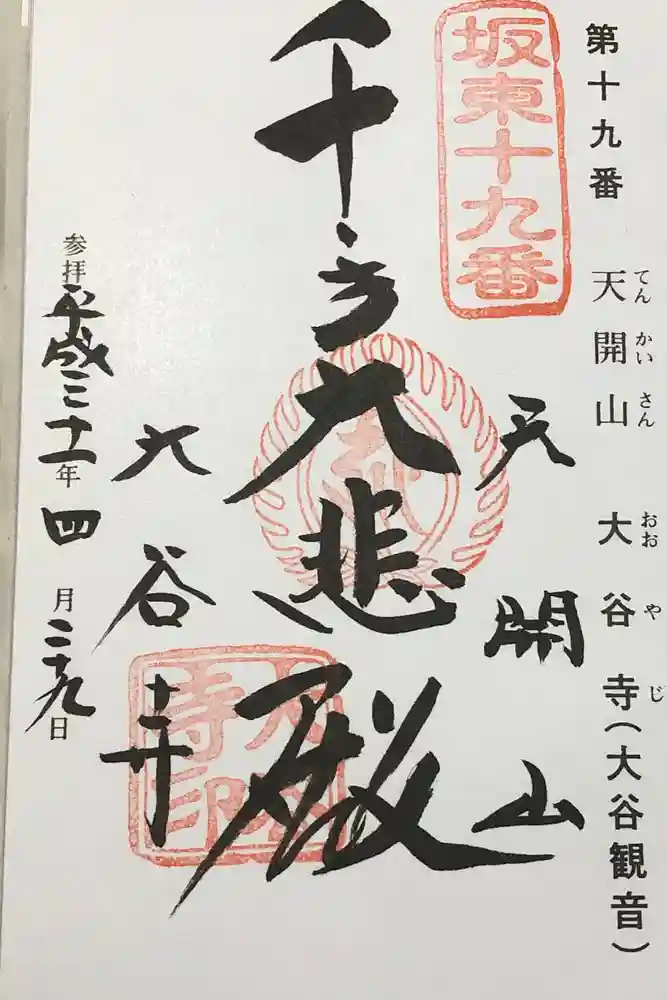 第十九番 天開山 大谷寺(大谷観音)
てんかいさん おおやじ
坂東十九番
天開山
千手大悲殿
大谷寺
大谷寺印
参拝平成三十一年四月二十九日